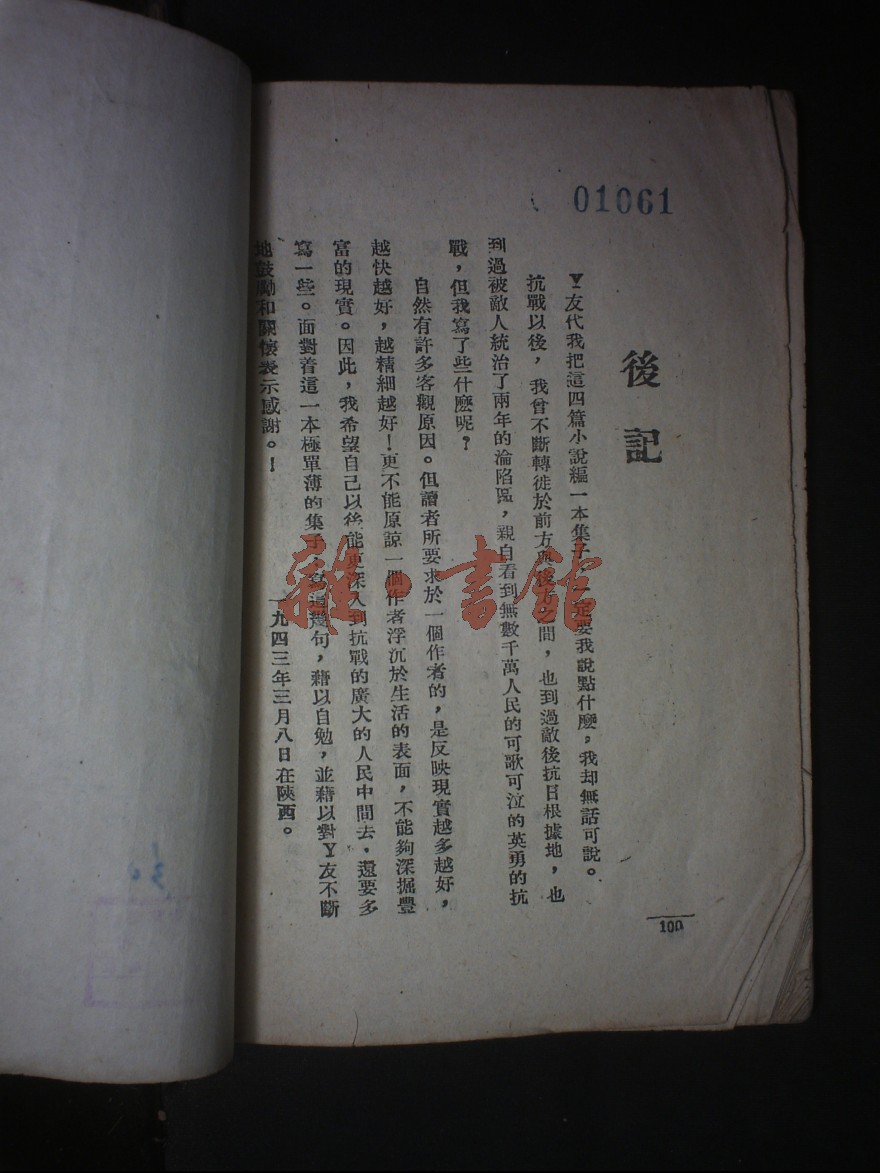 01061
後記
Y友代我把這四篇小說編一本集子，一定要我說點什麼，我却無話可說。
抗戰以後，我曾不斷轉徙於前方與後方之間，也到過敵後抗日根據地，也
到過被敵人統治了兩年的淪陷區，親自看到無數千萬人民的可歌可泣的英勇的抗
戰，但我寫了些什麼呢？
自然有許多客觀原因。但讀者所要求於一個作者的，是反映現實越多越好，
越快越好，越精細越好！更不能原諒一個作者浮沉於生活的表面，不能夠深掘豐
富的現實。因此，我希望自己以後能更深入到抗戰的廣大的人民中間去，還要多
寫一些。面對着這一本極單薄的集子，寫這幾句，藉以自勉，並藉以對Y友不斷
地鼓勵和關懷表示感謝。！
一九四三年三月八日在陝西。
100
雜·書館